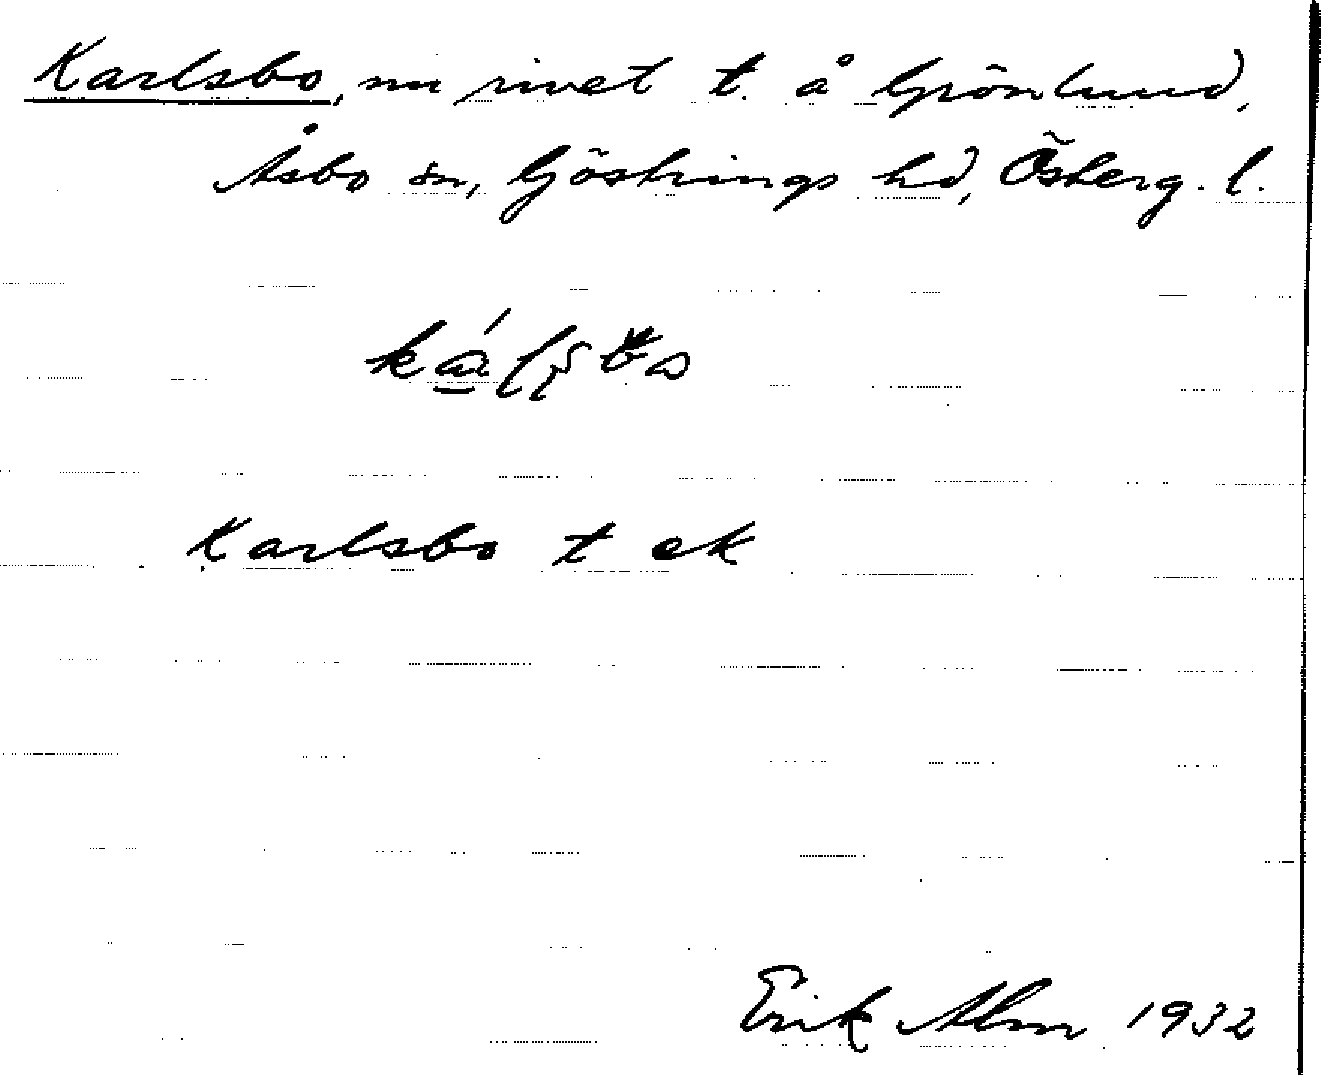 Karlsbo, nu rivet t. å Grönlund,
Åsbo sn, Göstrings hd, Österg. l.
Karlsbo t ek
Erik Alm 1932